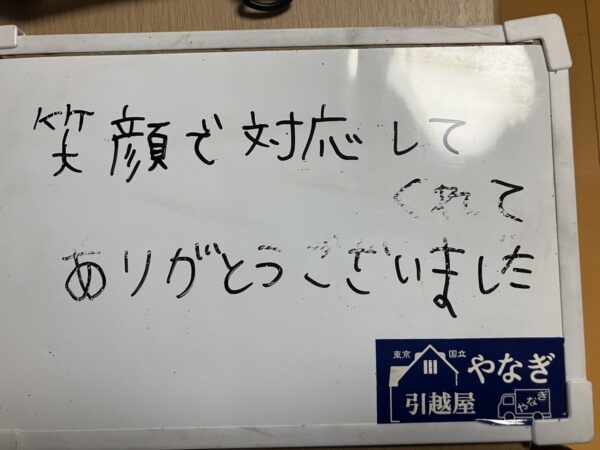 笑顔で対応して
くれて
ありがとうございました
東京 国立
やなぎ
引越屋
やなぎ